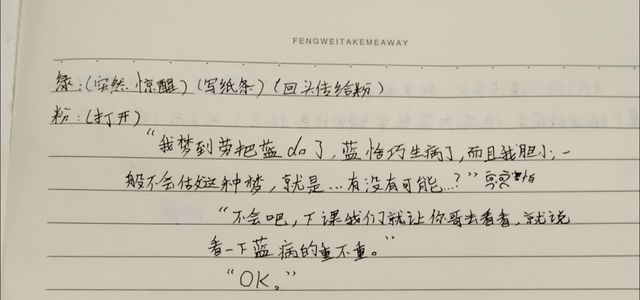 FENGWEITAKEMEAWAY
绿:(突然惊醒)(写纸条)(回头传给粉)
粉:(打开)
“我梦到劳把蓝do了,蓝恰巧生病了,而且我胆小,一
般不会做这种梦,就是…有没有可能…?”
“不会吧,下课我们就让你哥去看看,就说
看一下蓝病的重不重。”
“OK。”